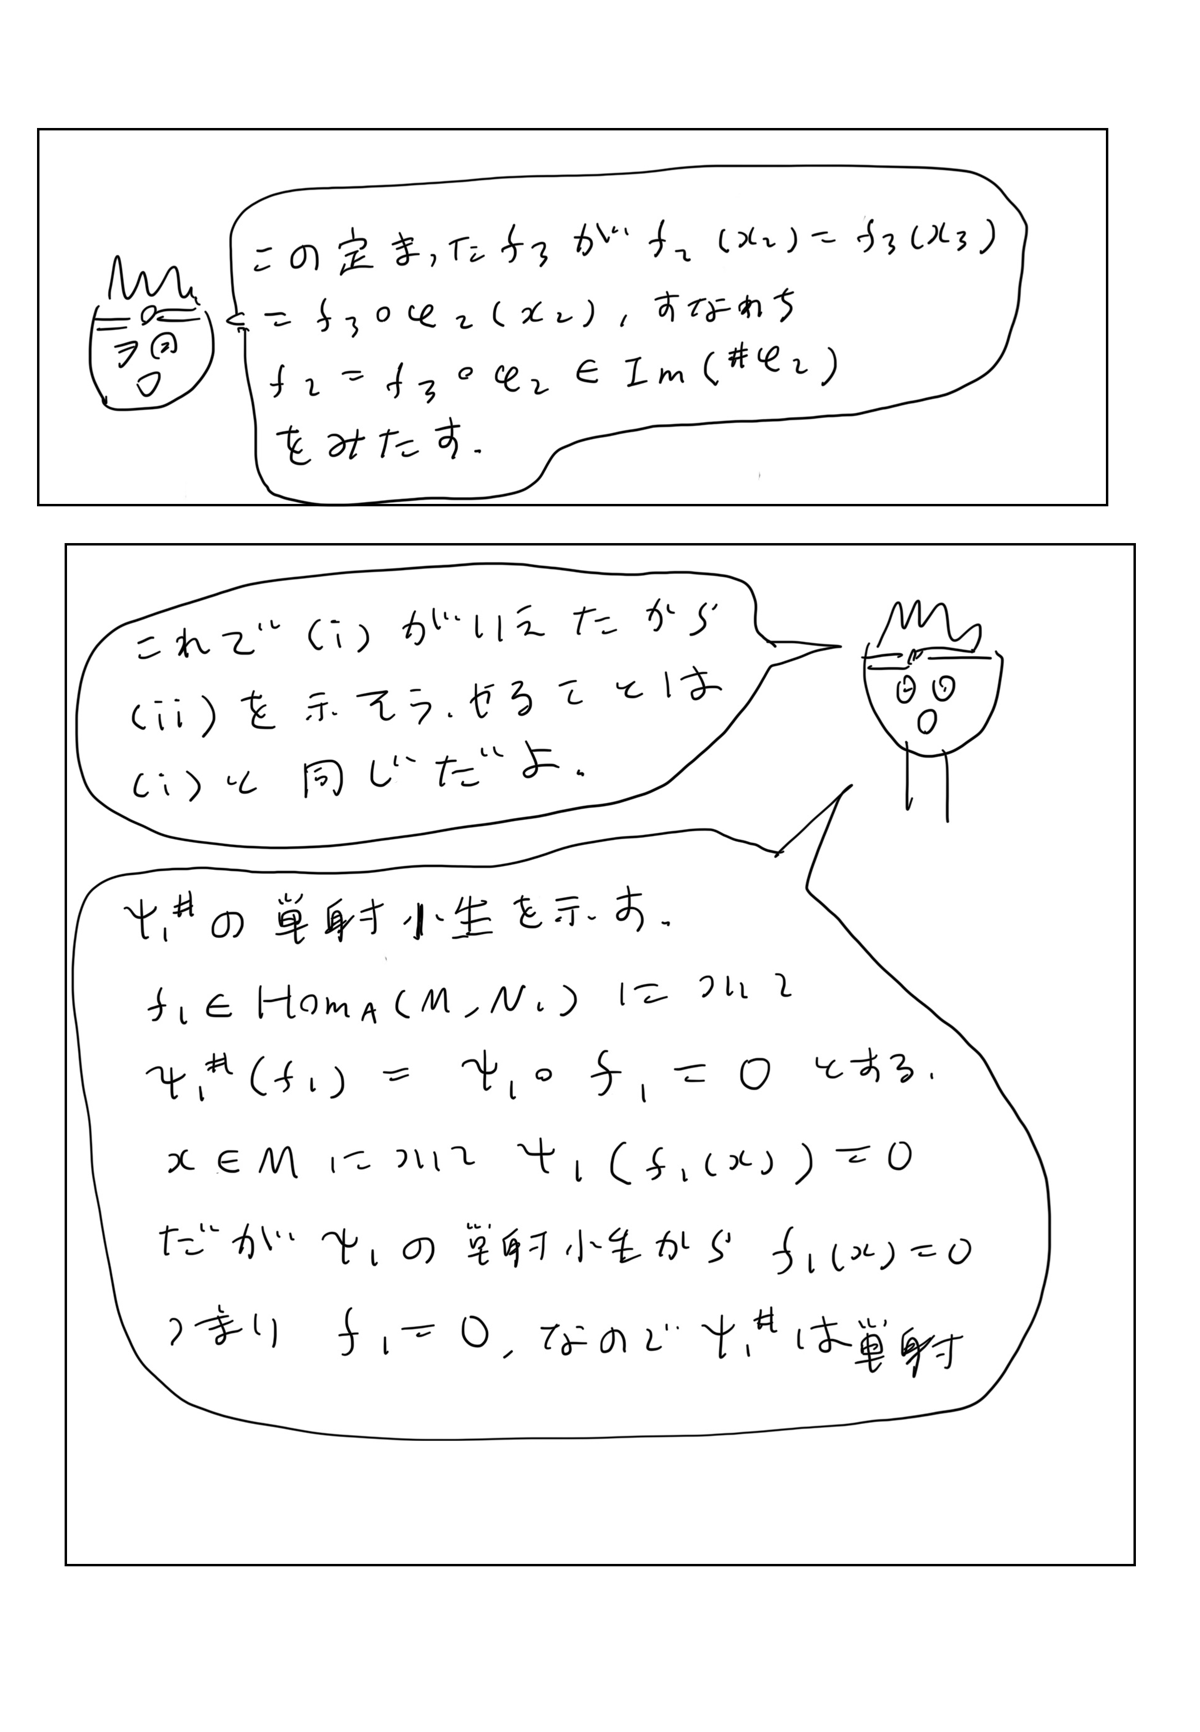 この定まった f₃ が f₂(x₂) = f₃(x₃)
= f₃∘φ₂(x₂), すなわち
f₂ = f₃∘φ₂ ∈ Im(#φ₂)
をみたす.
これで (i) がいえたから
(ii) を示そう. やることは
(i) と同じだよ.
ψ₁# の単射性を示す.
f₁ ∈ Hom_A(M, N₁) について
ψ₁#(f₁) = ψ₁∘f₁ = 0 とする.
x ∈ M について ψ₁(f₁(x)) = 0
だが ψ₁ の単射性から f₁(x) = 0
つまり f₁ = 0, なので ψ₁# は単射